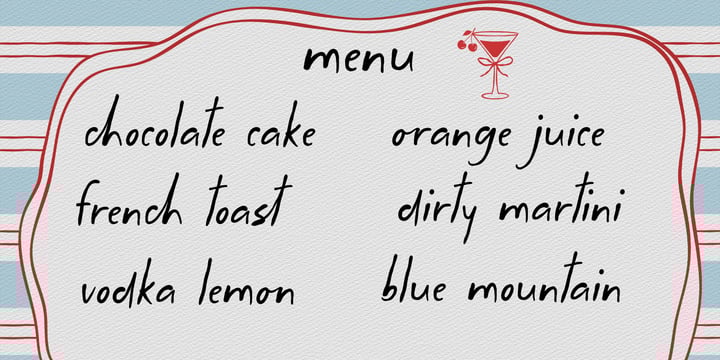 menu
chocolate cake
french toast
vodka lemon
orange juice
dirty martini
blue mountain